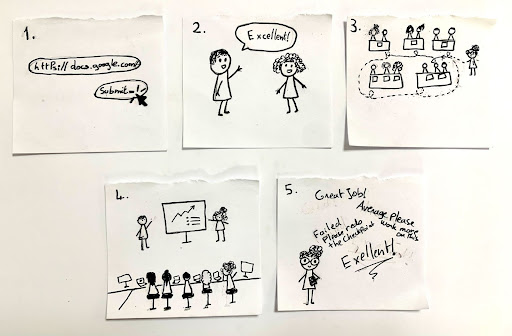 1.
https:// docs.google.com/
Submit !
2.
Excellent!
3.
4.
5.
Great Job!
Average Please
work more
on this
Failed
Please redo
the Checkpoint
Exellent!